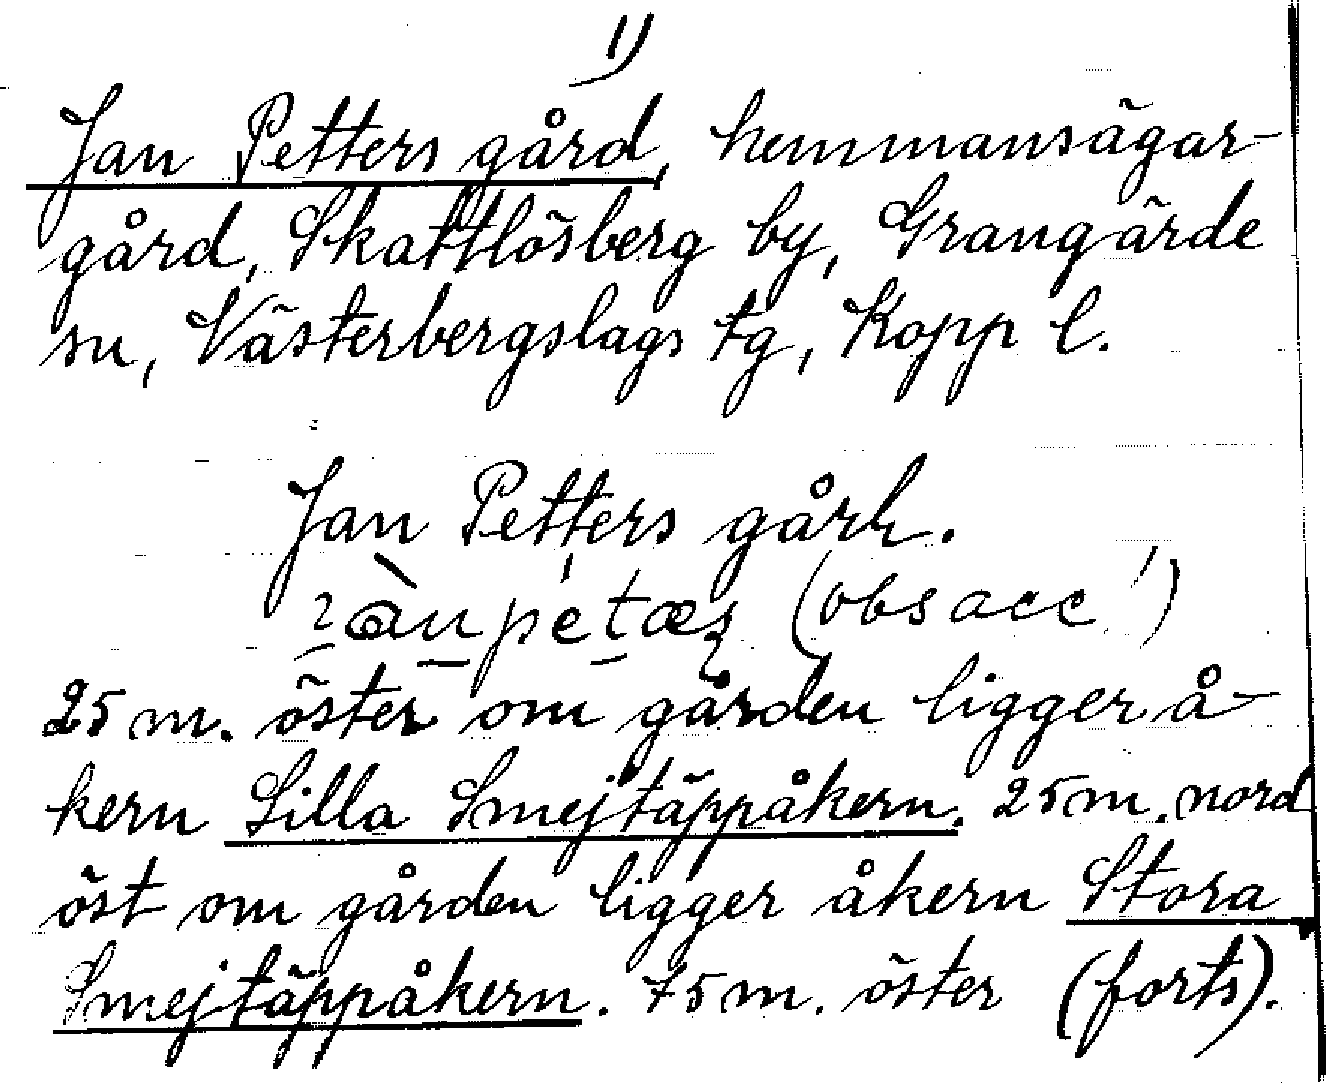 1)
Jan Petters gård, hemmansägar-
gård, Skattlösberg by, Grangärde
sn, Västerbergslags tg, Kopp l.
Jan Petters gård.
(obs acc ')
25 m. öster om gården ligger å-
kern Lilla Smejtäppåkern. 25 m. nord
öst om gården ligger åkern Stora
Smejtäppåkern. 75 m. öster (forts).